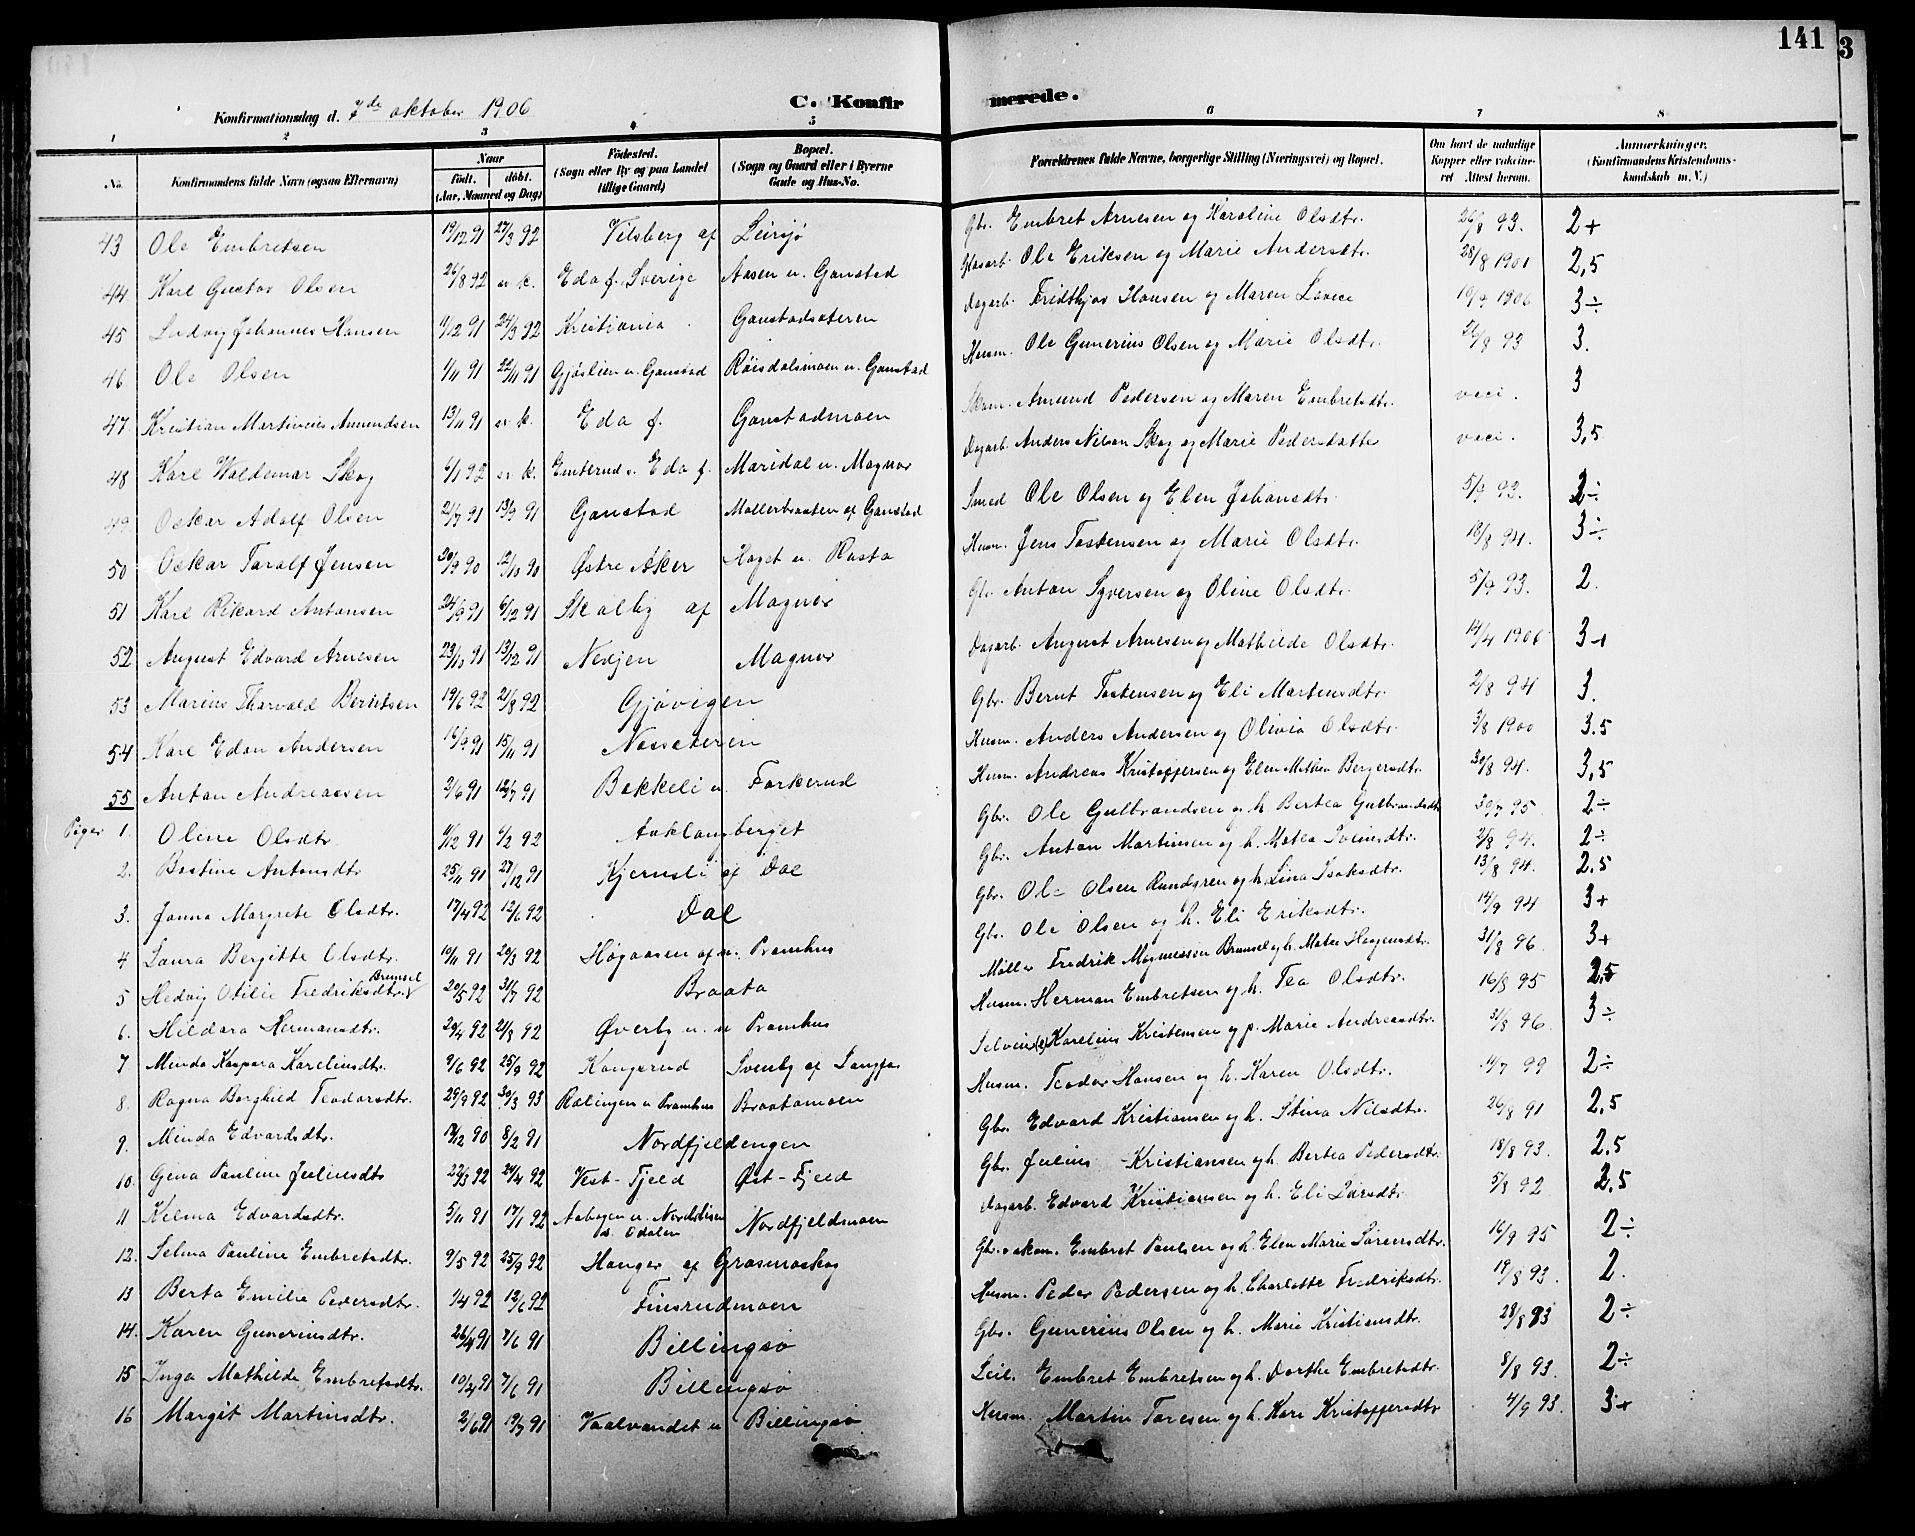 141
3
Konfirmationsdag d. 7de oktober 1906
C. Konfirmerede.
1 2 3 4 5 6 7 8
No. Konfirmandens fulde Navn (ogsaa Efternavn) Naar født. døbt. (Aar, Maaned og Dag) Fødested. (Sogn eller By og paa Landet tillige Gaard) Bopæl. (Sogn og Gaard eller i Byerne Gade og Hus-No. Forældrenes fulde Navne, borgerlige Stilling (Næringsvei) og Bopæl. Om havt de naturlige Kopper eller vaksineret Attest herom. Anmerkninger. (Konfirmandens Kristendomskundskab m. V.)
43 Ole Embretsen 19/12 91 27/3 92 Vilsberg af Leirsjø Gbr. Embret Arnesen og Karoline Olsdtr. 26/8 93. 2+
44 Karl Gustav Olsen 26/8 92 sv. k. Eda f. Sverige Aasen u. Gaustad Glasarb. Ole Eriksen og Marie Andersdtr. 28/8 1901 2,5
45 Ludvig Johannes Hansen 11/12 91 24/3 92 Kristiania Gaustadsæteren Dagarb. Fridthjov Hansen og Maren 1906 3÷
46 Ole Olsen 1/11 91 22/11 91 Gjøslien u. Gaustad Røisdalsmoen u. Gaustad Husm. Ole Gunerius Olsen og Marie Olsdtr. 26/8 93 3.
47. Kristian Martinius Amundsen 13/11 91 sv. k. Eda f. Gaustadmoen Skom. Amund Pedersen og Maren Embretsdtr. vaci. 3
48 Karl Waldemar Skog 6/1 92 sv. k. Emterud i Eda f. Maridal u. Magnor Dagarb. Anders Nilson Skog og Marie Pedersdatter vaci. 3,5
49 Oskar Adolf Olsen 21/7 91 13/9 91 Gaustad Møllerbraaten af Gaustad Smed Ole Olsen og Elen Johansdtr. 5/9 93. 2÷
50 Oskar Taralf Jensen 20/9 90 12/10 90 Østre Aker Haget u. Rasta Husm. Jens Tostensen og Marie Olsdtr. 18/8 94. 3÷
51 Karl Rikard Antonsen 24/9 91 6/12 91 Skolby af Magnor Gbr. Anton Syversen og Oline Olsdtr. 5/9 93. 2.
52 August Edvard Arnesen 23/10 91 13/12 91 Nesjen Magnor Dagarb. August Arnesen og Mathilde Olsdtr. 14/4 1906 3+
53 Marius Thorvald Berntsen 19/6 92 21/8 92 Gjøvigen Gbr. Bernt Tostensen og Eli Martensdtr. 2/8 94 3.
54 Karl Edon Andersen 16/9 91 15/11 91 Næsseteren Husm. Anders Andersen og Olivia Olsdtr. 3/8 1900 3.5
55 Anton Andreassen 2/6 91 12/7 91 Bakkeli u. Forkerud Husm. Andreas Kristoffersen og Elen Mathea Bergersdtr. 30/8 94. 3,5
Piger 1. Oline Olsdtr. 11/12 91 6/2 92 Aaklangberget Gbr. Ole Gulbrandsen og h. Bertea Gulbrandsdtr. 30/7 95. 2÷
2. Bastine Antonsdtr. 25/11 91 27/12 91 Kjernsli af Dal Gbr. Anton Martinsen og h. Matea Iversdtr. 2/8 94. 2÷
3. Janna Margrete Olsdtr. 17/4 92 12/6 92 Dal Gbr. Ole Olsen Rundgren og h. Lina Isaksdtr. 13/8 94. 2.5
4 Laura Bergitte Olsdtr. 10/11 91 20/3 92 Høgaasen af n. Pramhus Gbr. Ole Olsen og h. Eli Eriksdtr. 14/9 94 3+
5 Hedvig Otilie Fredriksdtr. Brunsel 20/5 92 31/7 92 Braata Møller Fredrik Magnussen Brunsel og h. Matea Haagensdtr. 31/8 96. 3+
6. Hildara Hermansdtr. 20/4 92 21/8 92 Øverby u. n Pramhus Husm. Herman Embretsen og h. Tea Olsdtr. 16/8 95 2,5
7 Minda Kaspara Karelinsdtr. 9/6 92 25/9 92 Kongsrud Svenby af Karelius Kristensen og p. Marie Andreasdtr. 31/8 96. 3÷
8. Ragna Borghild Teodorsdtr. 29/9 92 30/3 93 Rælingen u Pramhus Braatamoen Husm. Teodor Hansen og h. Karen Olsdtr. 10/7 99 2÷
9. Minda Edvardsdtr. 12/12 90 8/2 91 Nordfjeldengen Gbr. Edvard Kristiansen og h. Stina Nilsdtr. 26/8 91 2.5
10. Gina Pauline Juliusdtr 22/3 92 24/4 92 Vest-Fjeld Øst-Fjeld Gbr. Julius Kristiansen og h. Bertea Pedersdtr. 18/8 93. 2.5
11 Kilma Edvardsdtr. 5/11 91 17/1 92 Aabogen u. Nordstuen S. Odalen Nordfjeldmoen Dagarb. Edvard Kristiansen og h. Eli Larsdtr. 5/8 92 2,5
12. Selma Pauline Embretsdtr. 9/5 92 25/9 92 Hanger af Grasmoskog Gbr. o skom. Embret Paulsen og h. Elen Marie Sørensdtr. 16/9 95 2÷
13 Berta Emilie Pedersdtr. 1/4 92 12/6 92 Finsrudmoen Husm. Peder Pedersen og h. Charlotte Fredriksdtr. 19/8 93. 2.
14. Karen Gunerinsdtr. 26/4 91 7/6 91 Billingsø Gbr. Gunerius Olsen og h. Marie Kristiansdtr. 28/8 93 2÷
15 Inga Mathilde Embretsdtr. 10/4 91 7/6 91 Billingsø Leil. Embret Embretsen og h. Dorthe Embretsdtr. 8/8 93. 2÷
16 Margit Martinsdtr. 2/6 91 19/7 91 Vaalvandet u Billingsø. Husm. Martin Toresen og h. Kari Kristoffersdtr 4/9 93. 3+